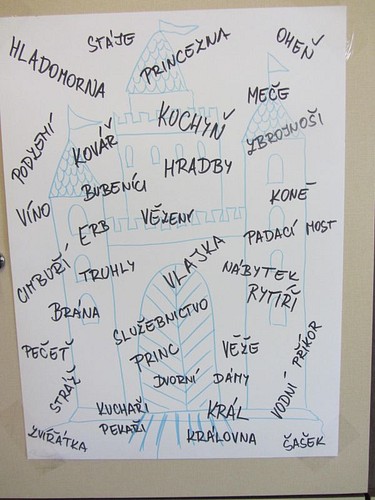 STÁJE
PRINCEZNA
OHEŇ
HLADOMORNA
MEČE
PODZEMÍ
KOVÁŘ
KUCHYŇ
ZBROJNOŠI
HRADBY
BUBENÍCI
KONĚ
VÍNO
ERB
VĚZENÍ
PADACÍ MOST
CIMBUŘÍ
TRUHLY
VLAJKA
NÁBYTEK
RYTÍŘI
BRÁNA
SLUŽEBNICTVO
PEČEŤ
PRINC
VĚŽE
VODNÍ PŘÍKOP
STRÁŽ
DVORNÍ DÁMY
KUCHAŘI
KRÁL
PEKAŘI
ZVÍŘÁTKA
KRÁLOVNA
ŠAŠEK